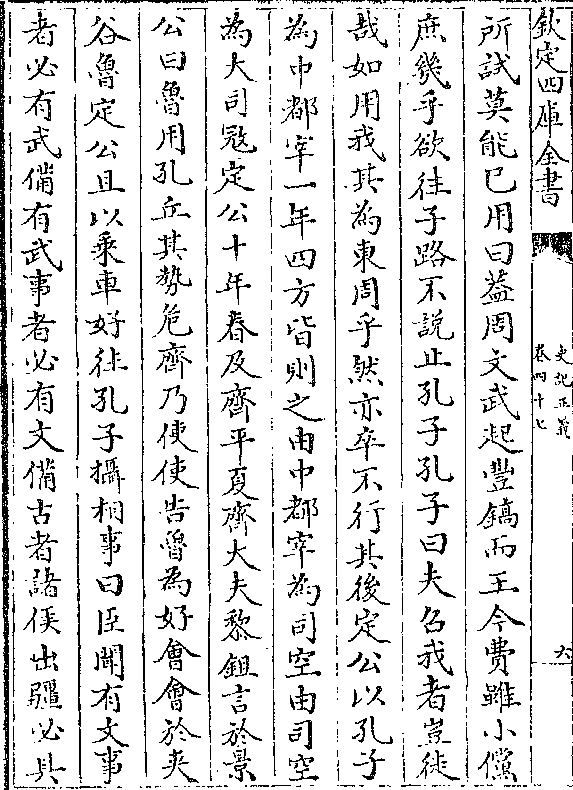 欽定四庫全書
史記正義
卷四十七
六
所試莫能已用曰葢周文武起豐鎬而王今費雖小儻
庶幾乎欲往子路不說止孔子孔子曰夫召我者豈徒
哉如用我其為東周乎然亦卒不行其後定公以孔子
為中都宰一年四方皆則之由中都宰為司空由司空
為大司寇定公十年春及齊平夏齊大夫黎鉏言於景
公曰魯用孔丘其勢危齊乃使使告魯為好會會於夾
谷魯定公且以乘車好往孔子攝相事曰臣聞有文事
者必有武備有武事者必有文備古者諸侯出疆必具